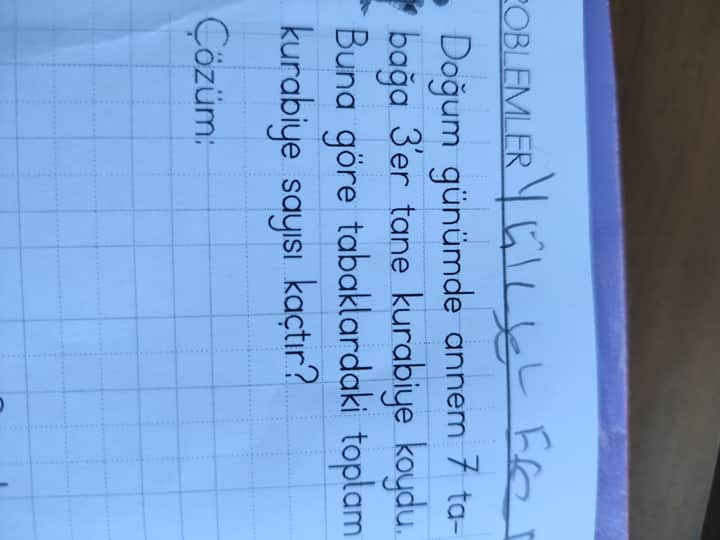 ROBLEMLER
Doğum günümde annem 7 ta-
bağa 3'er tane kurabiye koydu.
Buna göre tabaklardaki toplam
kurabiye sayısı kaçtır?
Çözüm: